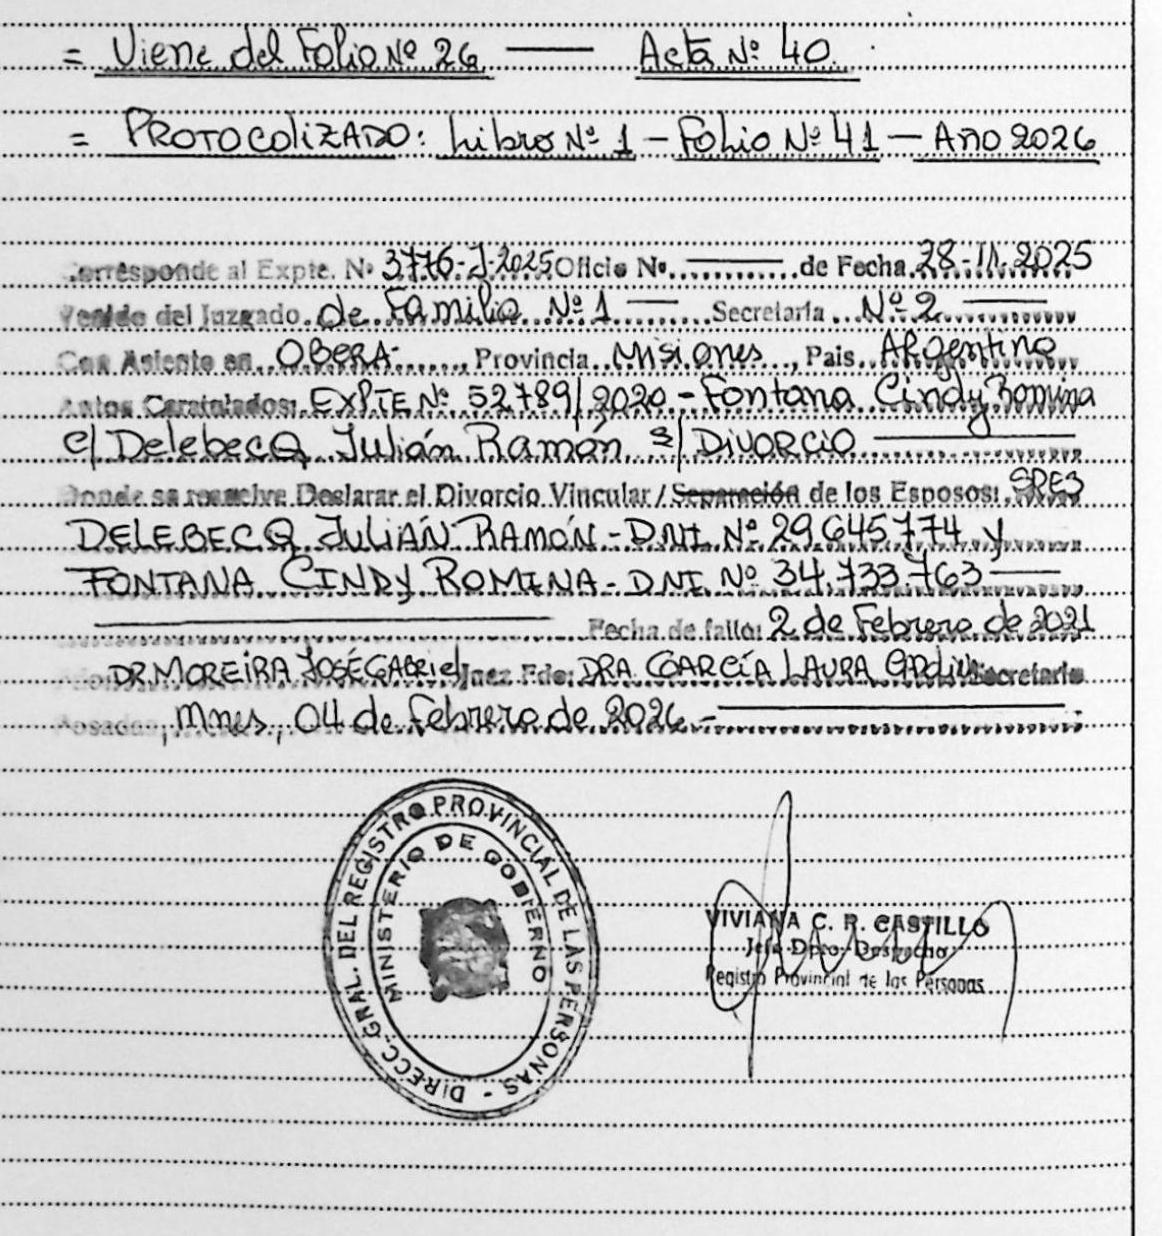 = Viene del Folio Nº 26 — Acta Nº 40.
= PROTOCOLIZADO: Libro Nº 1 - Folio Nº 41 - Año 2026
Corresponde al Expte. Nº 3776-J-2025 Oficio Nº. ——— de Fecha 28-11-2025
Venido del Juzgado de Familia Nº 1 — Secretaría Nº 2 —
Con Asiento en OBERÁ, Provincia Misiones, País Argentina
Autos Caratulados: EXPTE Nº 52789/2020 - Fontana Cindy Romina
c/ Delebecq Julián Ramón s/ DIVORCIO
Donde se resuelve Declarar el Divorcio Vincular / Separación de los Esposos: SRES
DELEBECQ JULIÁN RAMÓN - DNI Nº 29.645.774 y
FONTANA CINDY ROMINA - DNI Nº 34.733.763
Fecha de fallo: 2 de Febrero de 2021
DR MOREIRA JOSÉ GABRIEL Juez Fdo: DRA GARCÍA LAURA Secretaria
Posadas, Mnes, 04 de Febrero de 2026.-
DIRECC. GRAL. DEL REGISTRO PROVINCIAL DE LAS PERSONAS -
MINISTERIO DE GOBIERNO
VIVIANA C. R. CASTILLO
Jefa Dpto. Despacho
Registro Provincial de las Personas